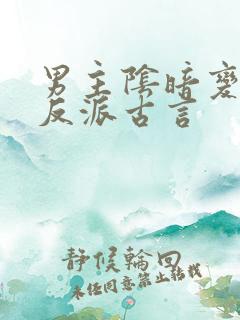 男主陰暗變
反派古言
靜候輪回
未经同意禁止转载